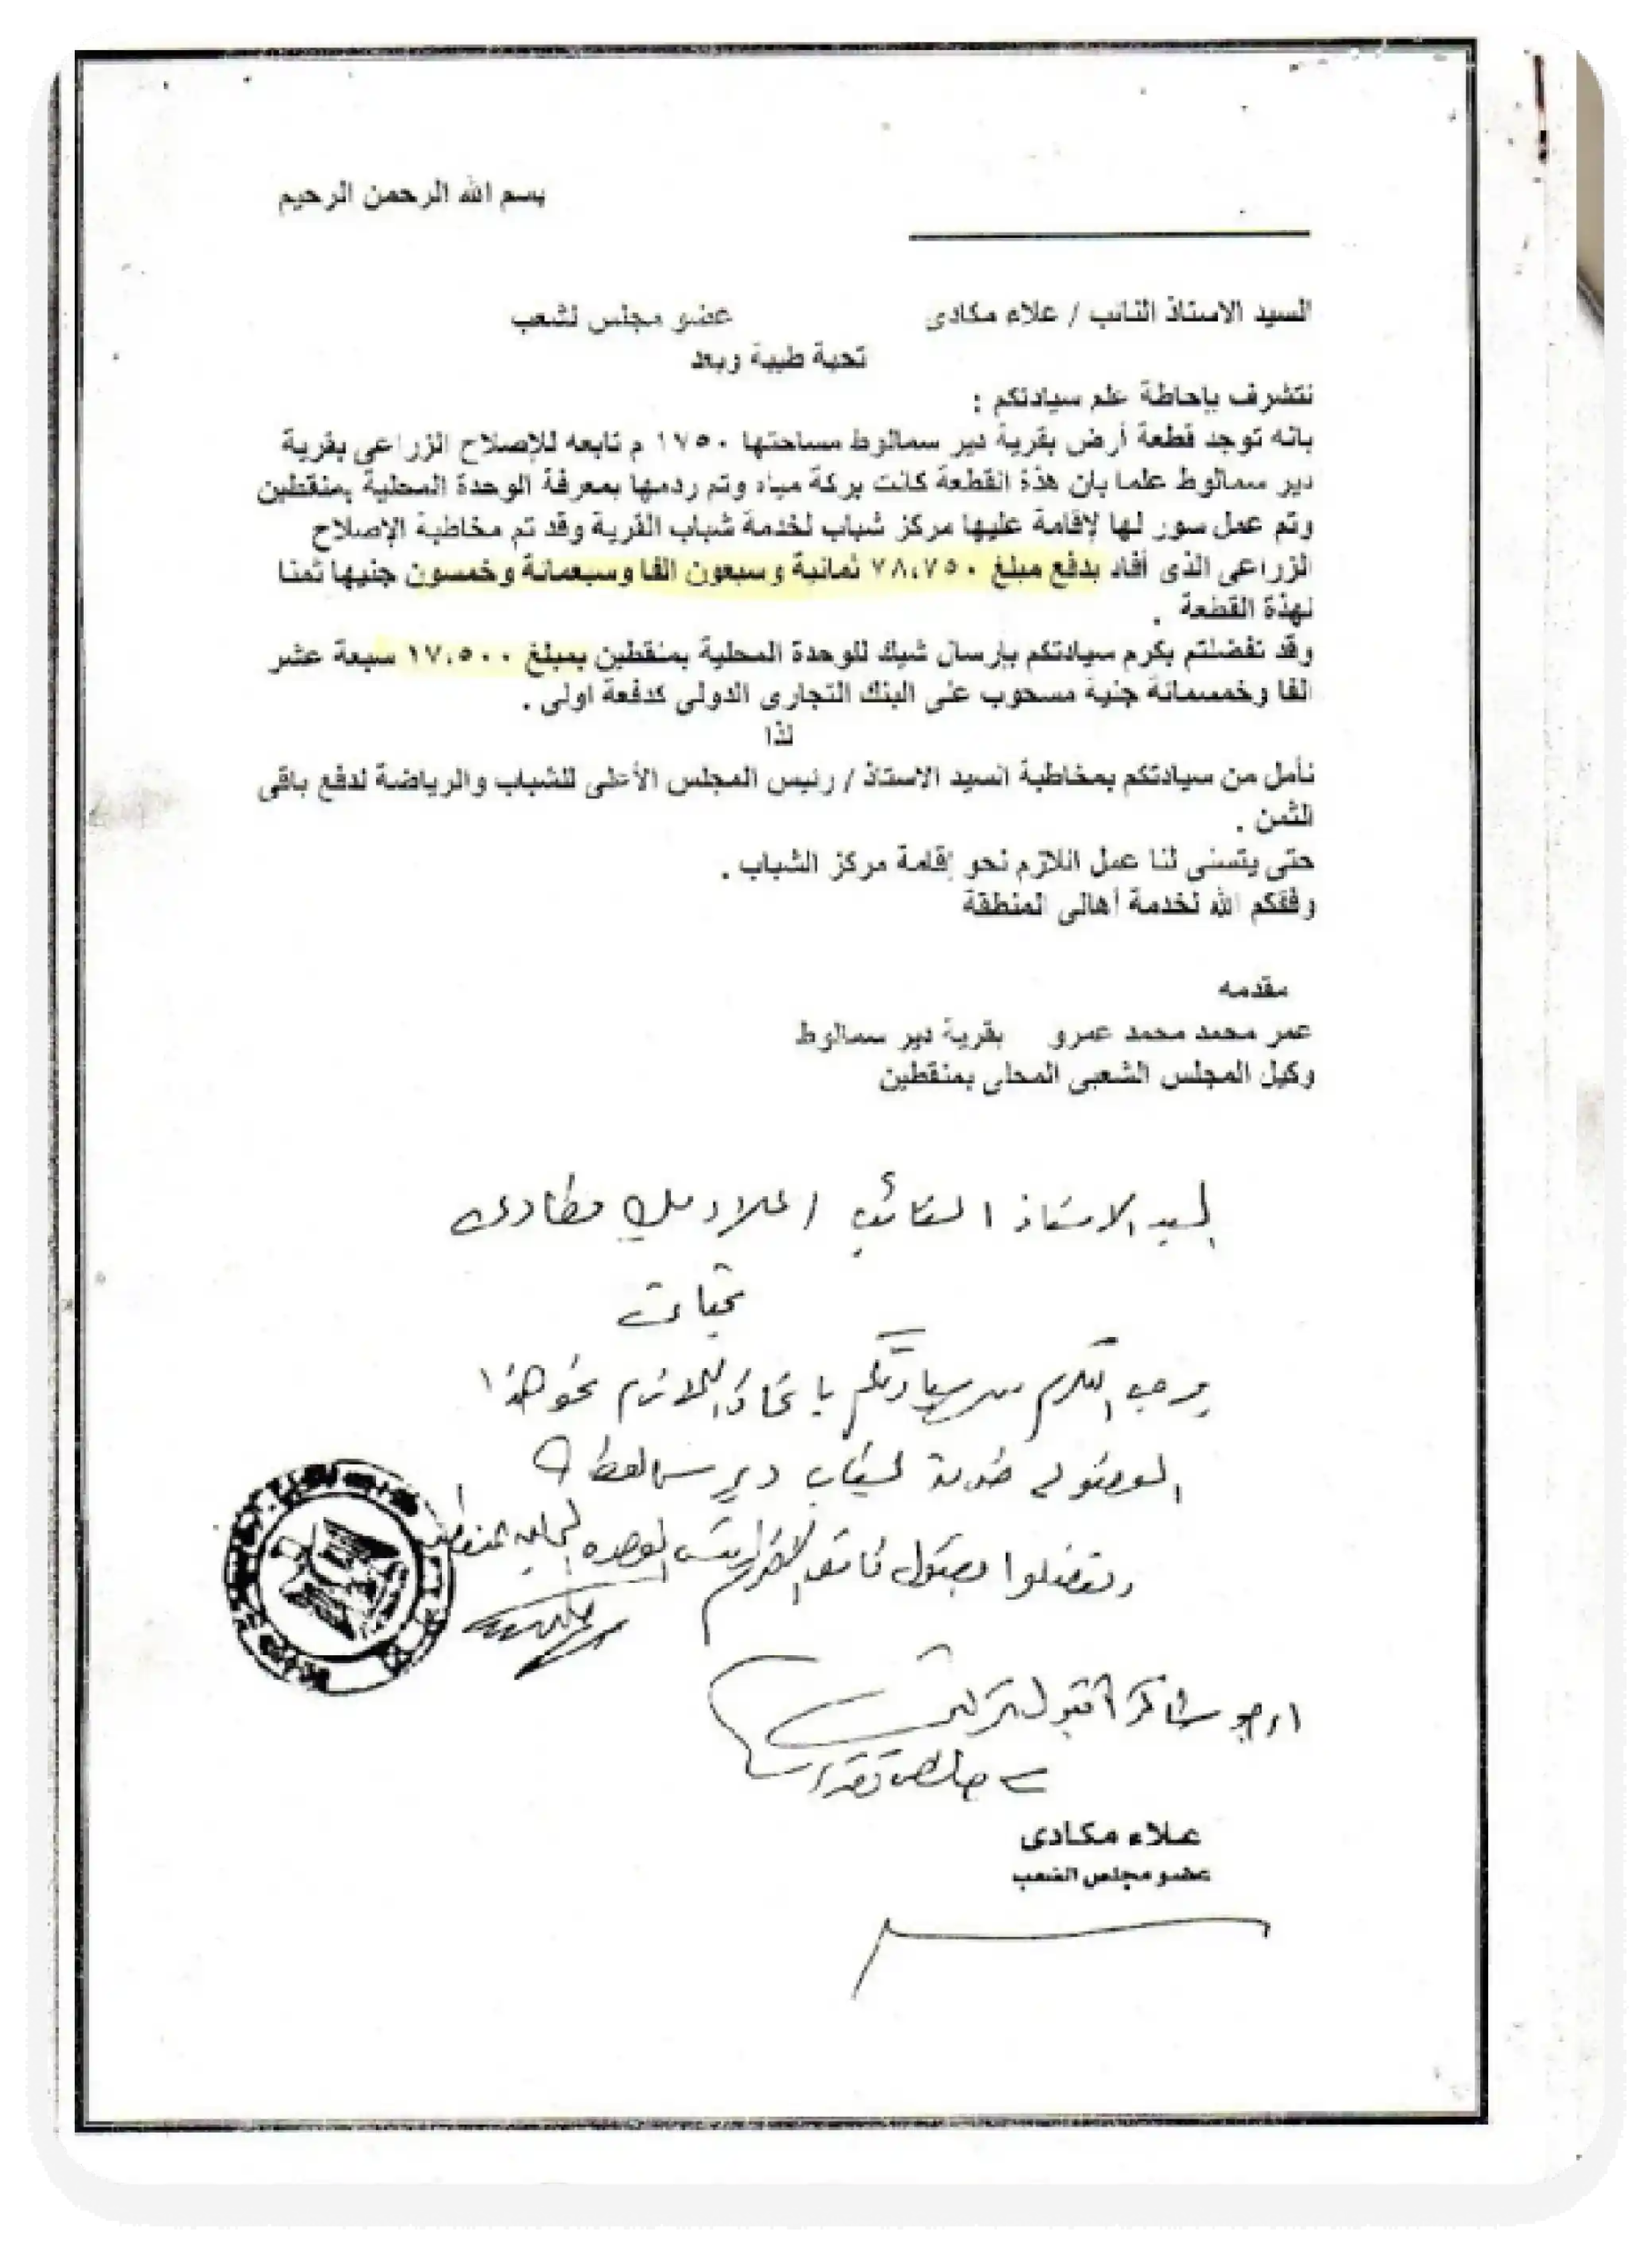 بسم الله الرحمن الرحيم
السيد الاستاذ النائب / علاء مكادى عضو مجلس لشعب
تحية طيبة وبعد
نتشرف بإحاطة علم سيادتكم :
بانه توجد قطعة أرض بقرية دير سمالوط مساحتها ١٧٥٠ م تابعه للإصلاح الزراعى بقرية
دير سمالوط علما بان هذة القطعة كانت بركة مياه وتم ردمها بمعرفة الوحدة المحلية بمنقطين
وتم عمل سور لها لإقامة عليها مركز شباب لخدمة شباب القرية وقد تم مخاطبة الإصلاح
الزراعى الذى أفاد بدفع مبلغ ٧٨،٧٥٠ ثمانية وسبعون الفا وسبعمائة وخمسون جنيها ثمنا
لهذة القطعة .
وقد تفضلتم بكرم سيادتكم بإرسال شيك للوحدة المحلية بمنقطين بمبلغ ١٧،٥٠٠ سبعة عشر
الفا وخمسمائة جنية مسحوب على البنك التجارى الدولى كدفعة اولى .
لذا
نأمل من سيادتكم بمخاطبة السيد الاستاذ / رئيس المجلس الأعلى للشباب والرياضة لدفع باقى
الثمن .
حتى يتسنى لنا عمل اللازم نحو إقامة مركز الشباب .
وفقكم الله لخدمة أهالى المنطقة
مقدمه
عمر محمد محمد عمرو بقرية دير سمالوط
وكيل المجلس الشعبى المحلى بمنقطين
السيد الاستاذ النائب / علاء مكادى
تحياتى
يرجى التكرم من سيادتكم باتخاذ اللازم نحو هذا
الموضوع خدمة لشباب دير سمالوط
وتفضلوا بقبول فائق الاحترام
رئيس الوحدة المحلية بمنقطين
ارجو
علاء مكادى
عضو مجلس الشعب